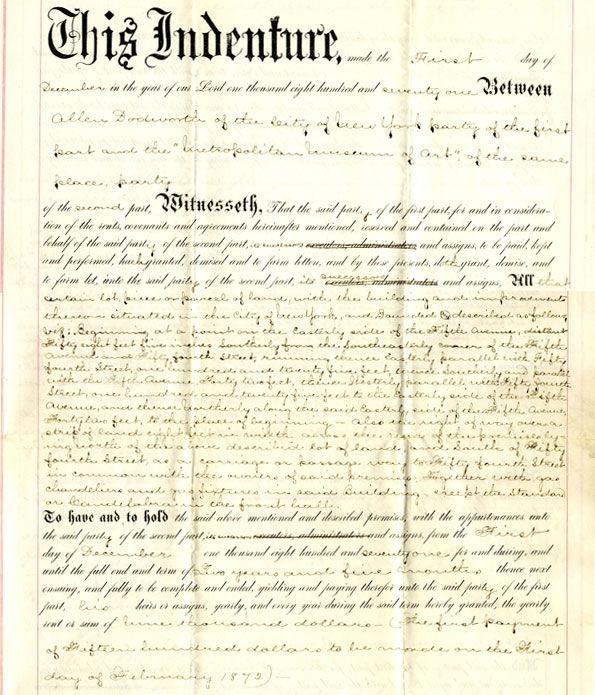 This Indenture, made the First day of
December in the year of our Lord one thousand eight hundred and seventy one Between
Allen Dodworth of the City of New York party of the first
part and the "Metropolitan Museum of Art", of the same
place, party
of the second part, Witnesseth, That the said party of the first part, for and in considera-
tion of the rents, covenants and agreements hereinafter mentioned, reserved and contained on the part and
behalf of the said party of the second part, its successors executors, administrators and assigns, to be paid, kept
and performed, hath granted, demised and to farm letten, and by these presents, doth grant, demise, and
to farm let, unto the said party of the second part, its successors executors, administrators and assigns, All that
certain lot, piece or parcel of land, with the building and improvements
thereon situated in the City of New York, and bounded & described as follows
viz: Beginning at a point on the Easterly side of the Fifth Avenue, distant
Fifty eight feet five inches Southerly from the Southeasterly corner of the Fifth
Avenue and Fifty fourth Street, running thence Easterly, parallel with Fifty
fourth Street, one hundred and twenty five feet, thence Southerly and parallel
with the Fifth Avenue Forty two feet, thence Westerly parallel with Fifty fourth
Street, one hundred and twenty five feet to the Easterly side of the Fifth
Avenue, and thence northerly along the said Easterly side of the Fifth Avenue,
Forty two feet, to the place of beginning — Also the right of way over a
strip of land eight feet in width across the rear of the premises ly-
ing north of the above described lot of land and South of Fifty
fourth Street, as a carriage or passage way to Fifty fourth Street
in common with the owners of said premises. Together with gas
chandeliers and gas fixtures in said building, except the Standard
or Candelabra in the front hall.
To have and to hold the said above mentioned and described premises, with the appurtenances unto
the said party of the second part, its successors executors, administrators and assigns, from the First
day of December one thousand eight hundred and seventy one for and during, and
until the full end and term of Two years and five months thence next
ensuing, and fully to be complete and ended, yielding and paying therefor unto the said party of the first
part, his heirs or assigns, yearly, and every year during the said term hereby granted, the yearly
rent or sum of nine thousand dollars — (The first payment
of Fifteen hundred dollars to be made on the First
day of February 1872) —